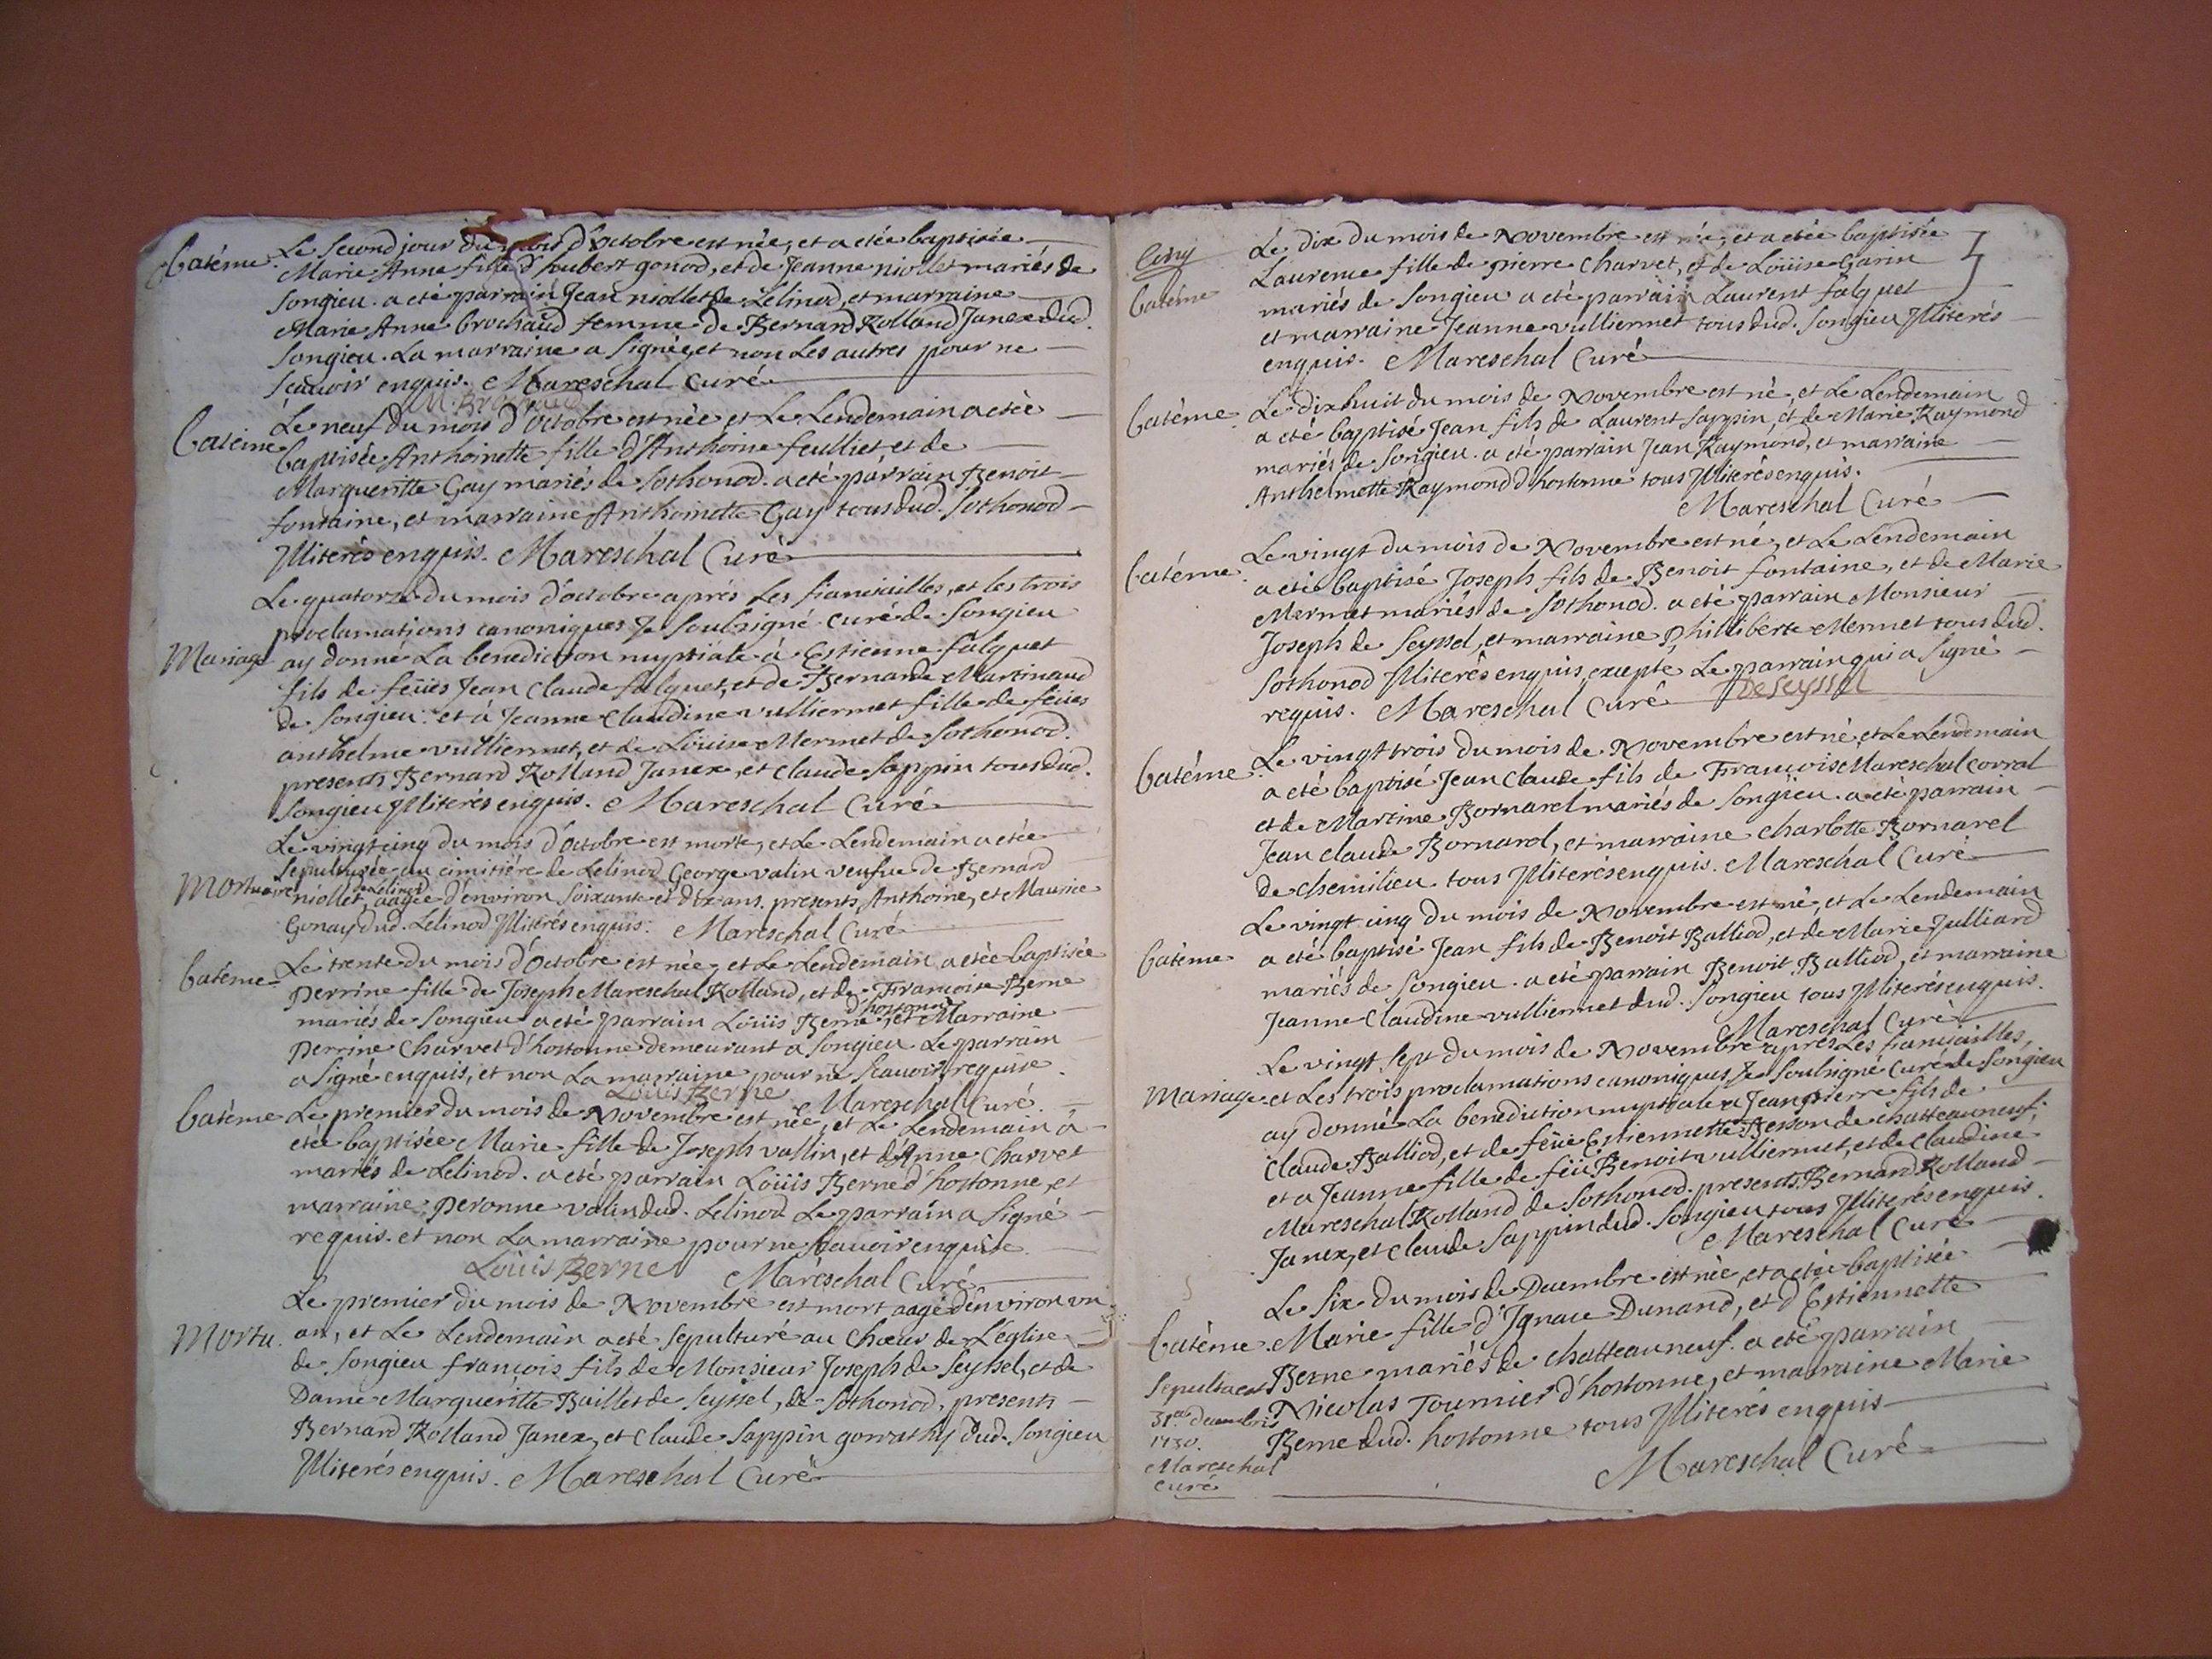 Batéme. Le second jour du mois d'octobre est née, et a etée baptisée
Marie Anne fille d'humbert gonod, et de Jeanne niollet mariés de
songieu. a eté parrain Jean niollet de Lelinod, et marraine
Marie Anne brochaud femme de Bernard Rolland Janex dud.
songieu. La marraine a signée, et non Les autres pour ne
sçavoir enquis. Mareschal Curé
M. Brochaud
Batéme Le neuf du mois d'octobre est née et Le Lendemain a etée
baptisée Anthoinette fille d'Anthoine feulliet, et de
Margueritte Gay mariés de Sothonod. a eté parrain Benoit
fontaine, et marraine Anthoinette Gay tous dud. Sothonod
Jlliterés enquis. Mareschal Curé
Le quatorze du mois d'octobre aprés Les fiansailles, et les trois
proclamations canoniques Je soubsigné curé de songieu
Mariage ay donné La benediction nuptiale à Estienne falquet
fils de feües Jean Claude falquet, et de Bernarde Martinand
de songieu. et à Jeanne Claudine vulliermet fille de feües
anthelme vulliermet, et de Loüise Mermet de Sothonod.
presents Bernard Rolland Janex, et Claude Sappin tous dud.
Songieu Jlliterés enquis. Mareschal Curé
Le vingt cinq du mois d'octobre est morte, et Le Lendemain a etée
sepulturée au cimitiére de Lelinod George valin veufve de Bernard
Mortuaire niollet, de Lelinod aagée d'environ soixante et dix ans. presents Anthoine, et Maurice
Gonay dud. Lelinod Jlliterés enquis. Mareschal Curé
Batéme Le trente du mois d'octobre est née, et Le Lendemain a etée baptisée
Perrine fille de Joseph Mareschal Rolland, et de Françoise Berne
mariés de songieu a eté parrain Loüis Berne d'hostonne, et Marraine
Perrine Charvet d'hostonne demeurant a songieu Le parrain
a signé enquis, et non La marraine pour ne sçavoir requise.
Loüis Berne Mareschal Curé.
Batéme Le premier du mois de Novembre est née, et Le Lendemain a
etée baptisée Marie fille de Joseph vallin, et d'Anne Charvet
mariés de Lelinod. a eté parrain Loüis Berne d'hostonne, et
marraine Peronne valin dud. Lelinod Le parrain a signé
requis. et non La marraine pour ne sçavoir enquise
Loüis Berne Mareschal Curé
Le premier du mois de Novembre est mort aagé d'environ un
Mortu. an, et Le Lendemain a eté sepulturé au Chœur de L'église
de Songieu françois fils de Monsieur Joseph de Seyssel, et de
Dame Margueritte Baillet de Seyssel, de Sothonod, presents
Bernard Rolland Janex, et Claude Sappin gonrathy dud. Songieu
Jlliterés enquis. Mareschal Curé
Cinq Le dix du mois de Novembre est née, et a etée baptisée 5
Batéme Laurence fille de pierre Charvet, et de Loüise Garin
mariés de Songieu a eté parrain Laurent falquet
et marraine Jeanne vulliermet tous dud. Songieu Jlliterés
enquis. Mareschal Curé
Batéme. Le dixhuit du mois de Novembre est né, et Le Lendemain
a eté baptisé Jean fils de Laurent Sappin, et de Marie Raymond
mariés de Songieu. a eté parrain Jean Raymond, et marraine
Anthelmette Raymond d'hostonne tous Jlliterés enquis.
Mareschal Curé
Le vingt du mois de Novembre est né, et Le Lendemain
Batéme. a eté baptisé Joseph fils de Benoit fontaine, et de Marie
Mermet mariés de Sothonod. a eté parrain Monsieur
Joseph de Seyssel, et marraine Philliberte Mermet tous dud.
Sothonod Jlliterés enquis, excepté Le parrain qui a signé
requis. Mareschal Curé DeSeyssel
Le vingt trois du mois de Novembre est né, et Le Lendemain
Batéme a eté baptisé Jean Claude fils de François Mareschal corral
et de Martine Bornarel mariés de Songieu. a eté parrain
Jean claude Bornarel, et marraine Charlotte Bornarel
de chemilieu tous Jlliterés enquis. Mareschal Curé
Le vingt cinq du mois de Novembre est né, et Le Lendemain
Batéme a eté baptisé Jean fils de Benoit Balliod, et de Marie Julliard
mariés de Songieu. a eté parrain Benoit Balliod, et marraine
Jeanne Claudine vulliermet dud. Songieu tous Jlliterés enquis.
Mareschal Curé
Le vingt sept du mois de Novembre aprés Les fiansailles,
Mariage et Les trois proclamations canoniques Je soubsigné Curé de Songieu
ay donné La benediction nuptiale a Jean pierre fils de
Claude Balliod, et de feüe Estiennette Besson de chatteauneuf,
et a Jeanne fille de feü Benoit vulliermet, et de Claudine
Mareschal Rolland de Sothonod. presents Bernard Rolland
Janex, et Claude Sappin dud. Songieu tous Jlliterés enquis.
Mareschal Curé
Le six du mois de Decembre est née, et a etée baptisée
Batéme. Marie fille d'Ignace Dunand, et d'Estiennette
Berne mariés de chatteauneuf. a eté parrain
Nicolas Tournier d'hostonne, et marraine Marie
Berne dud. hostonne tous Jlliterés enquis
Mareschal Curé
31e Decembris
1730.
Mareschal
curé